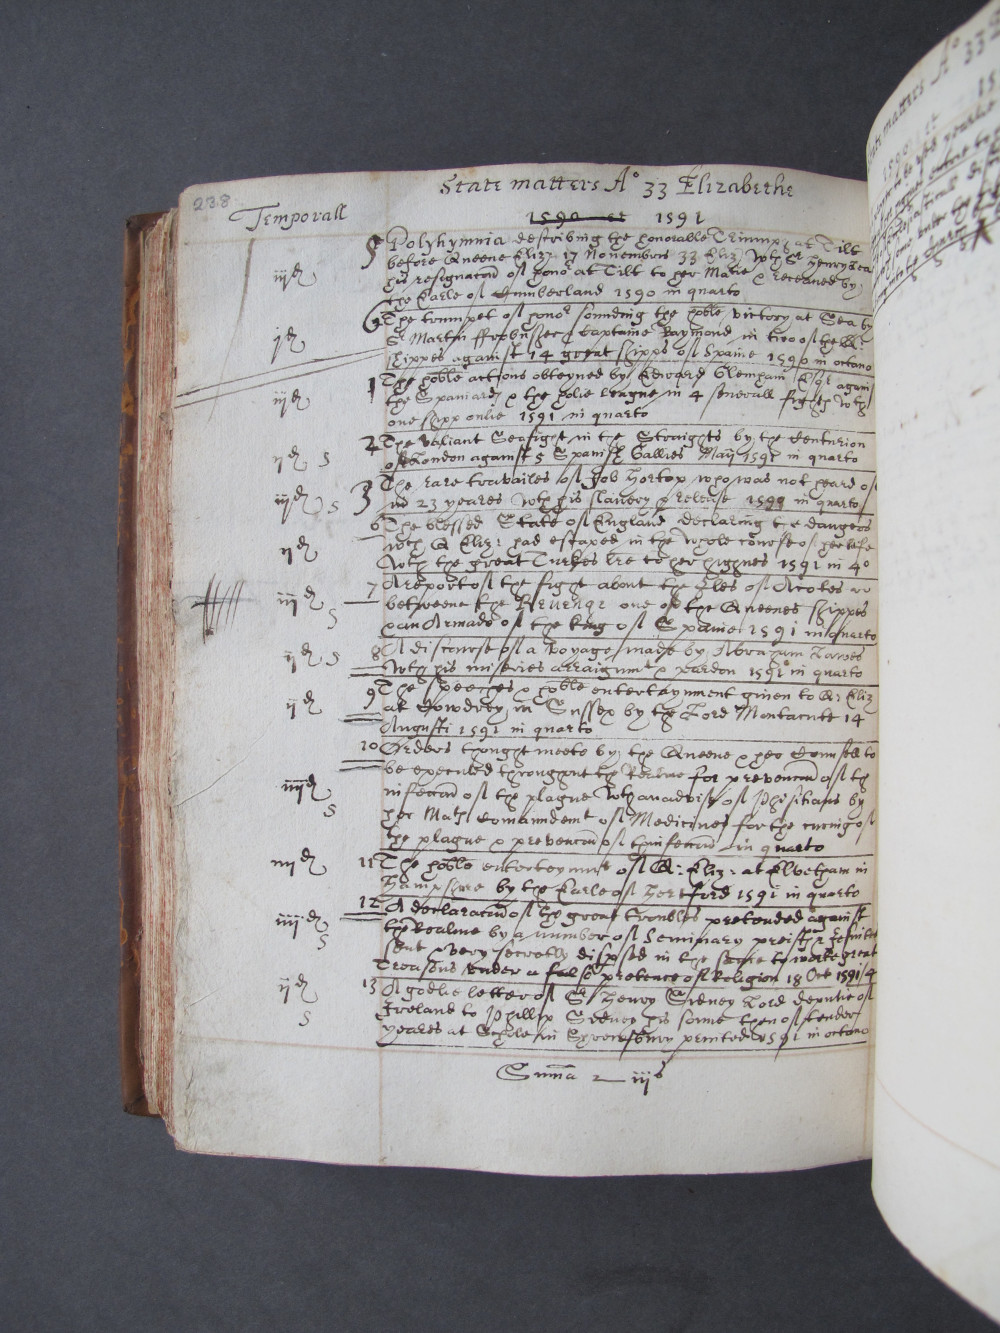 238
State matters Ao 33 Elizabethe
Temporall
1590 et 1591
5 Polyhymnia describing the honorable Triumph at Tilt
before Queene Eliz: 17 Nouembris 33 Eliz: wth Sr Henry Lea
his resignacon of hono at Tilt to her Matie & receaued by
the Earle of Cumberland 1590 in quarto
iijd
6 The trumpet of honor sounding the noble victory at Sea by
Sr Martin ffrobusher & Captaine Raymond in two of the Q:
shippes against 14 great shipps of Spaine 1590 in octauo
jd
1 The noble actions obteyned by Edward Glemham Esqr against
the Spaniards & the holie leugue in 4 seuerall fights wth
one shipp onlie 1591 in quarto
ijd
2 The valiant Seafight in the Straights by the Centurion
of London against 5 Spanish Gallies May 1591 in quarto
ijd S
3 The rare travailes of Job Hortop who was not heard of
in 23 yeares wth his slavery & release 1591 in quarto
iijd S
6 The blessed State of England declaring the dangers
wch Q Eliz: had escaped in the whole course of her life
wth the great Turkes lre to her highnes 1591 in 4o
ijd
7 A report of the fight about the Iles of Acores
betweene the Reuenge one of the Queenes shippes
& an Armado of the king of Spaine 1591 in quarto
iijd
S
8 A discourse of a voyage made by Abraham
wth his miseries arraignmt & pardon 1591 in quarto
ijd S
9 The speeches & noble entertaynment giuen to Q: Eliz
at Cowdrey in Sussex by the Lord Montacute 14
Augusti 1591 in quarto
ijd
10 Orders thought meete by the Queene & her Counsell to
be executed throughout the Realme for prevencon of the
infeccon of the plague wth an advise of Phisitians by
her Mats Comaundemt of Medicines for the curing of
the plague & prevencon of infeccon in quarto
iiijd
S
11 The noble entertaynmt of Q: Eliz: at Elvetham in
Hampshire by the Earle of Hertford 1591 in quarto
iiijd
12 A declaracon of the great troubles pretended against
the Realme by a number of Seminary preists & Jesuites
sent & very secretly dispersed in the same to worke great
Treasons under a false pretence of Religion 18 Oct 1591 / 4
iiijd
S
13 A godlie letter of Sr Henry Sidney Lord deputie of
Ireland to Phillip Sidney his sonne then of tender
yeares at Schole in Shrewsbury printed 1591 in octauo
ijd
S
Suma iijs